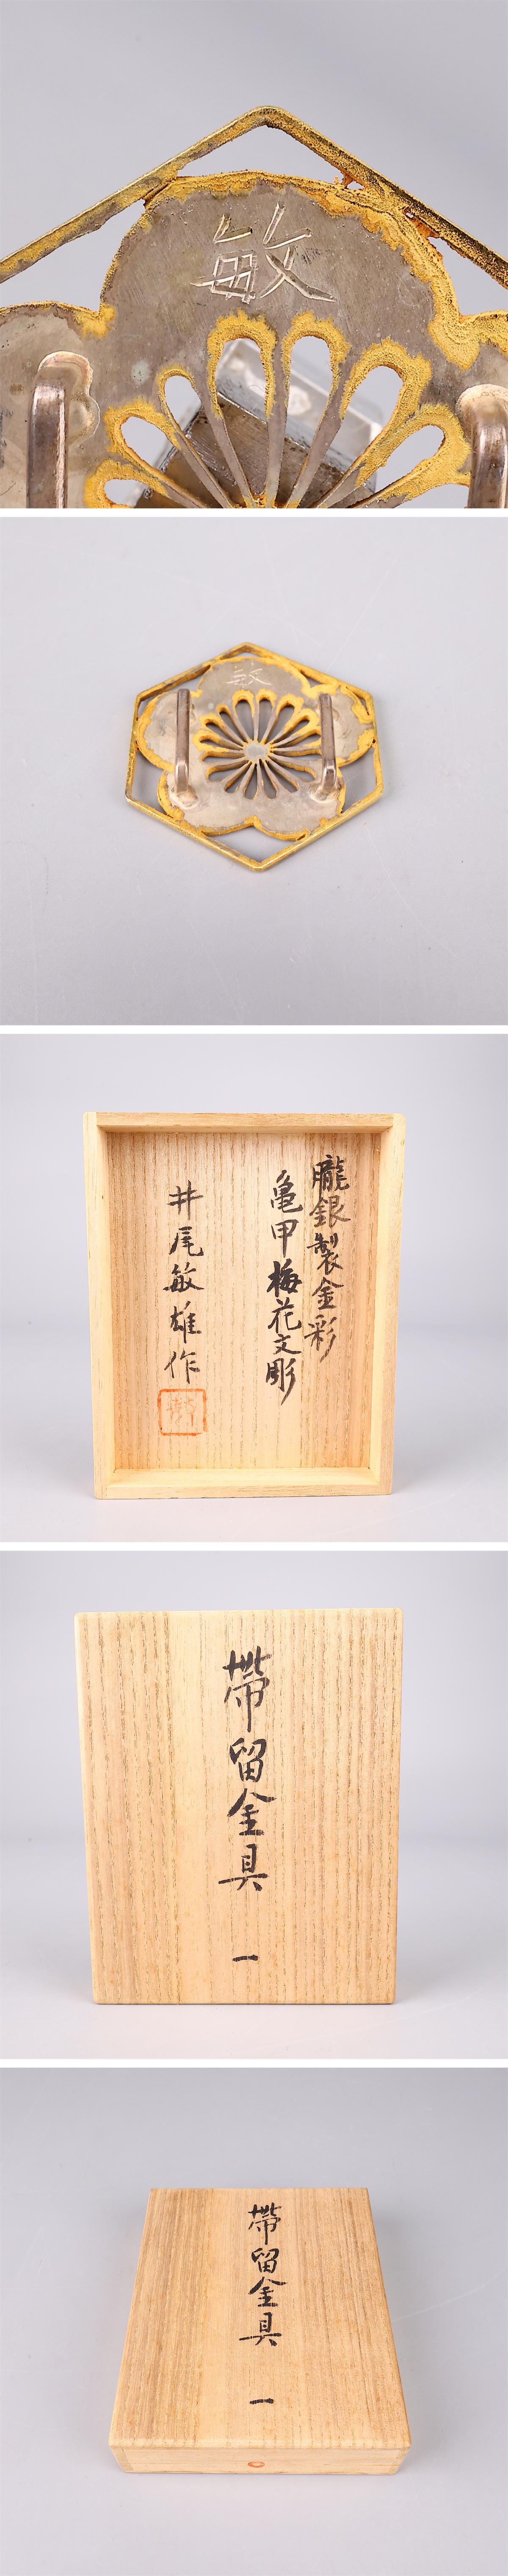 敏
敏
朧銀製金彩
亀甲梅花文彫
井尾敏雄作
帯留金具 一
帯留金具 一